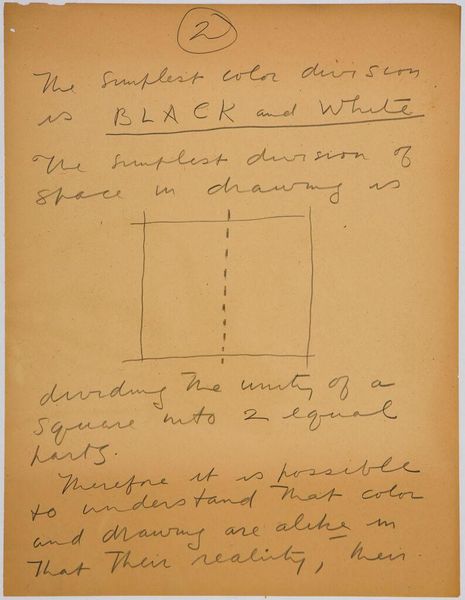 2
The simplest color division
is BLACK and White
The simplest division of
space in drawing is
dividing the unity of a
square into 2 equal
parts.
Therefore it is possible
to understand that color
and drawing are alike in
that their reality, their